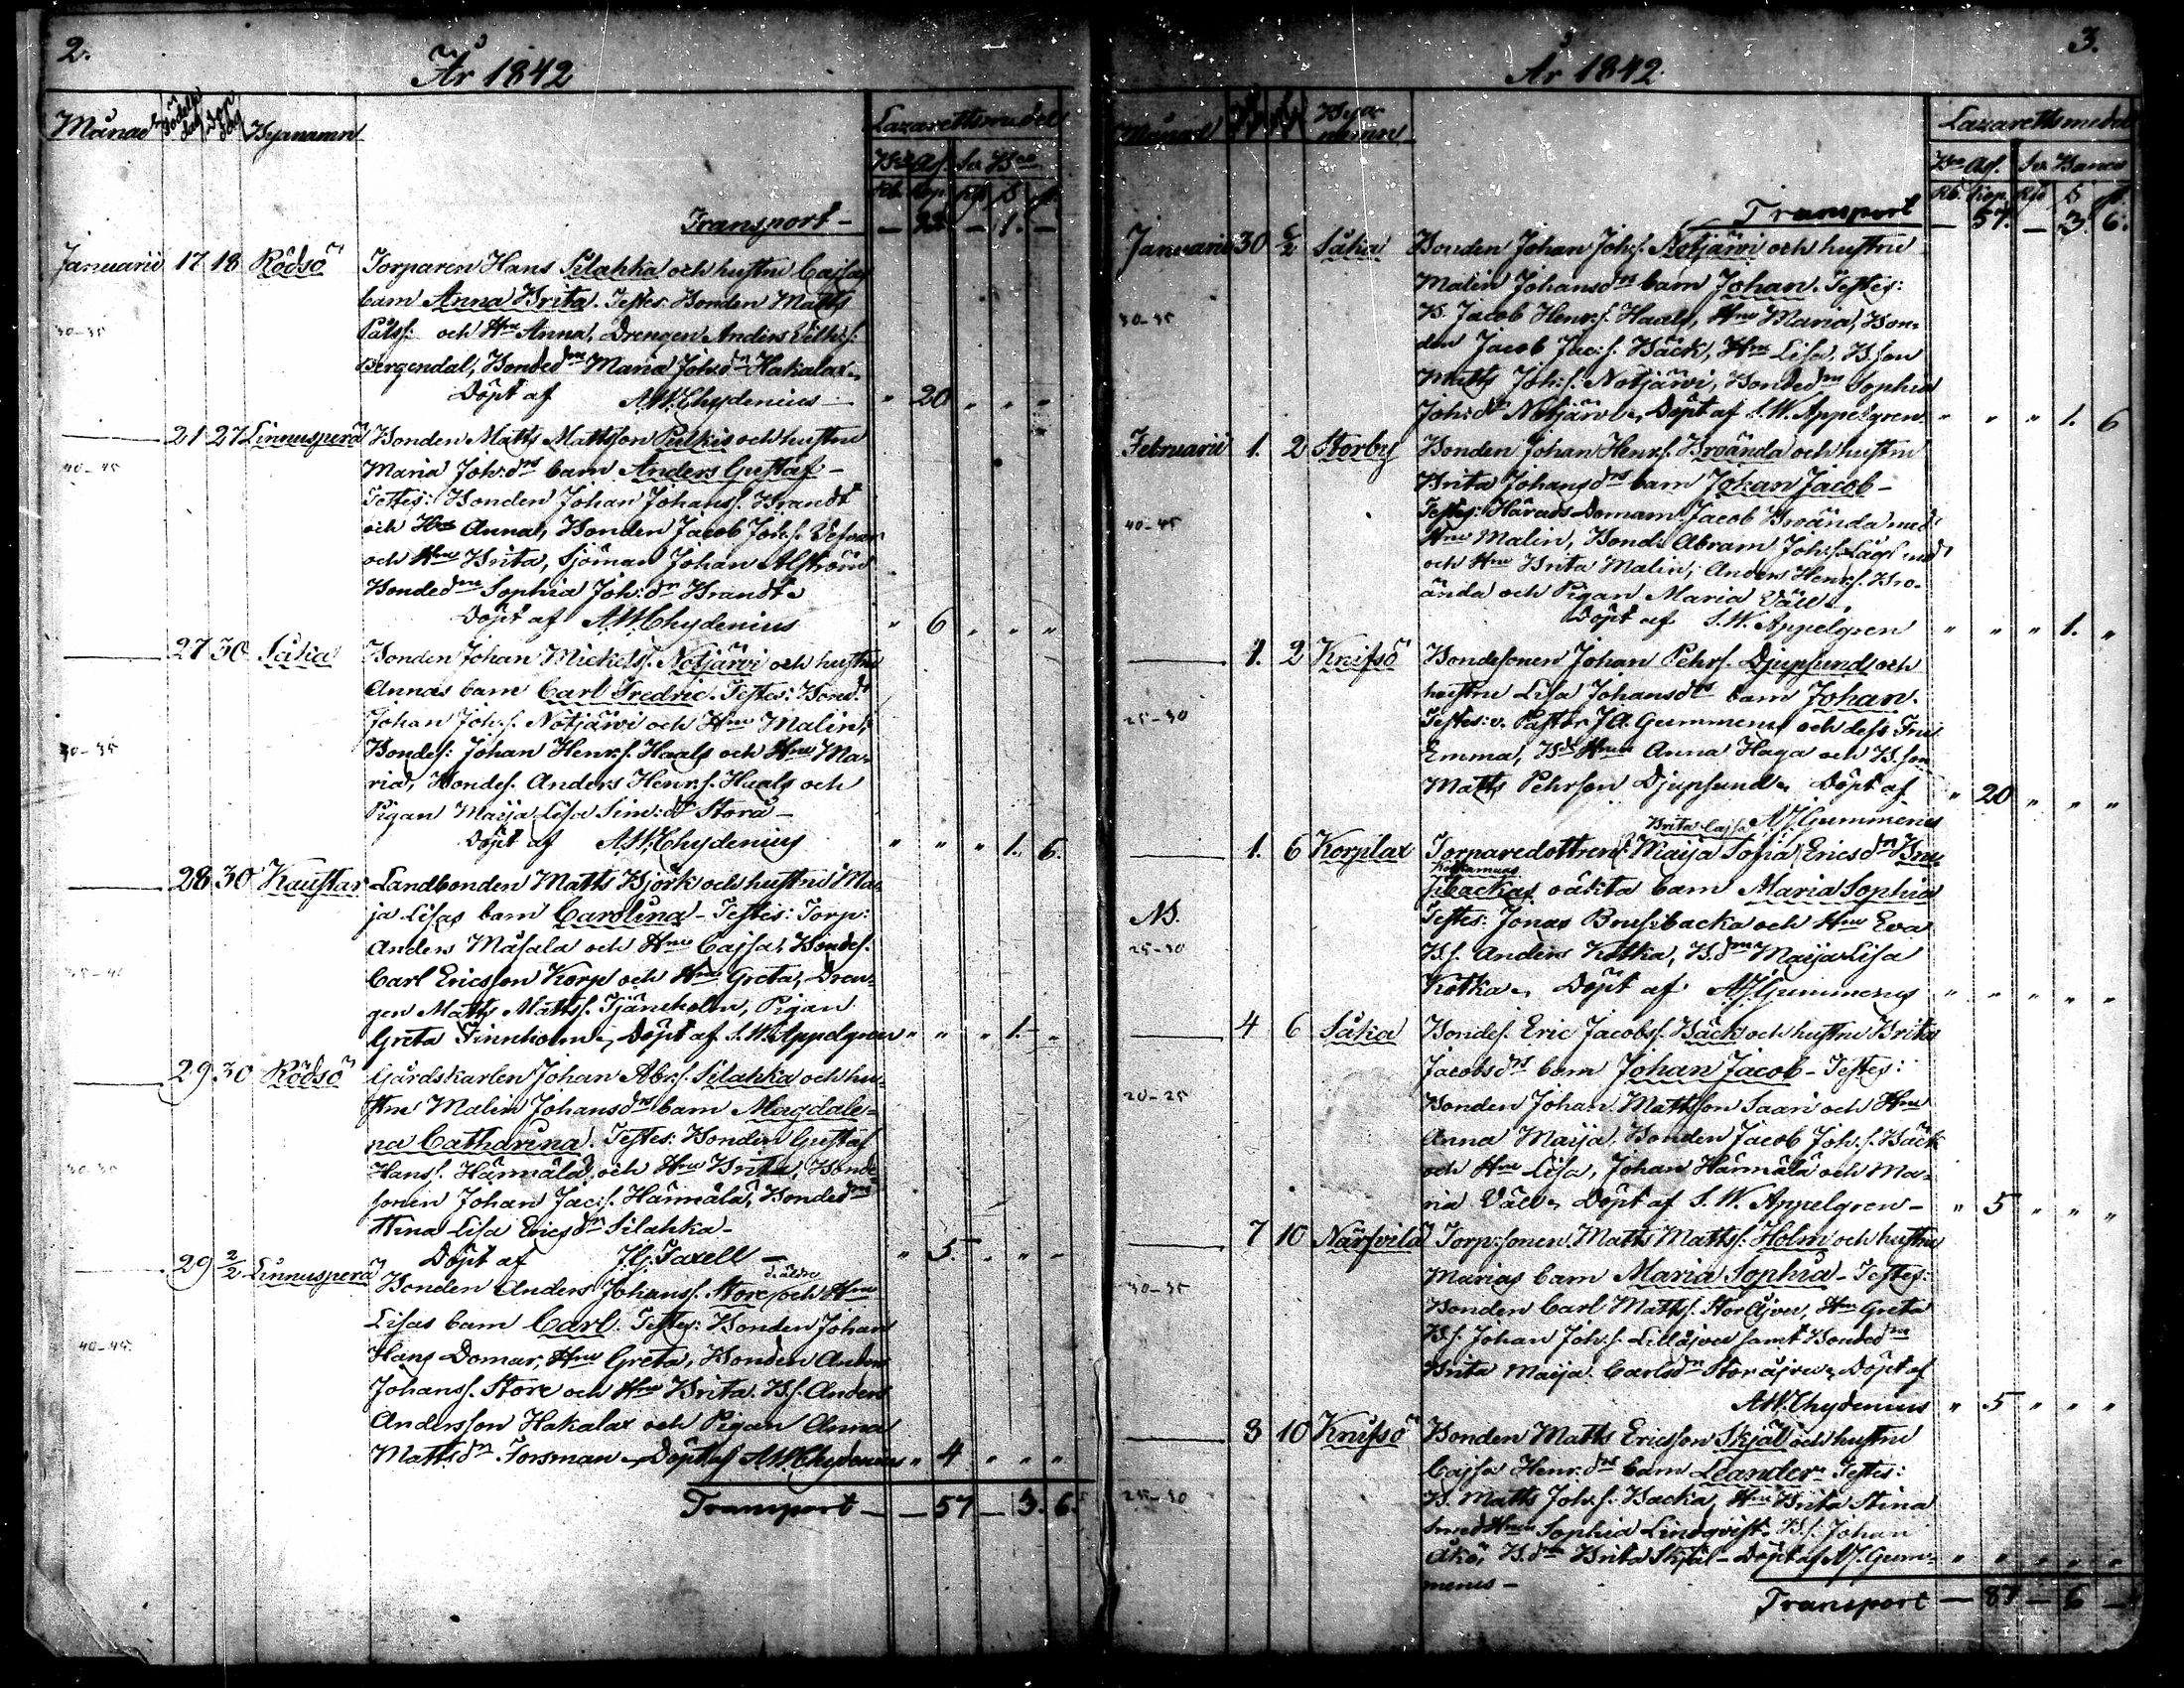 2.
År 1842
Månad Födelse dag Döp dag Byanamn Lazarettsmedel
Bco Ass. Sv. Bco
Rb. Kop. Rd. S. r.
Transport — — 22 — 1. —
Januarii 17 18 Rödsö Torparen Hans Silahka och hustru Cajsas
barn Anna Brita. Testes: Bonden Matts
30-35 Påls s: och Hru Anna, Drengen Anders
Bergendal, Bondedm Maria Joh:dr Hakalax.
Döpt af A.W. Chydenius — " 20 " " "
21 27 Linnusperä Bonden Matts Mattsson Pulkis och hustru
40-45 Maria Joh:drs barn Anders Gustaf —
Testes: Bonden Johan Johanss. Brandt
och Hru Anna, Bonden Jacob Joh:s.
och Hru Brita, Sjöman Johan Alström
Bondedm Sophia Joh:dr Brandt.
Döpt af A.W. Chydenius " 6 " " "
27 30 Såka Bonden Johan Mickelss. Nötjärvi och hustru
Annas barn Carl Fredric. Testes: Bond:
Johan Joh:s. Nötjärvi och Hru Malin;
30-35 Bondes: Johan Henr:s. Haals och Hru Ma-
ria, Bondes. Anders Henr:s. Haals och
Pigan Maija Lisa Sim:dr Storå —
Döpt af A.W. Chydenius " " " 1. 6.
28 30 Kaustar Landbonden Matts Björk och hustru Ma-
ja Lisas barn Carolina — Testes: Torp:
Anders Måsala och Hru Cajsa, Bondes.
35-40 Carl Ericsson Korp och Hru Greta, Dren-
gen Matts Mattss. Tjäneholm, Pigan
Greta Finnholm. Döpt af S.W. Appelgren " " " 1. "
29 30 Rödsö Gårdskarlen Johan Abr:s. Silahka och hu-
stru Malin Johansdrs barn Magdale-
na Catharina. Testes: Bonden Gustaf
30-35 Hanss. Hännälä och Hru Brita, Bonde
sonen Johan Jac:s. Hännälä, Bondedm
Stina Lisa Ericsdr Silahka —
Döpt af J.G. Taxell — " 5. " " "
29 2/2 Linnusperä Bonden Anders Johanss. Store d. äldre och Hru
Lisas barn Carl. Testes: Bonden Johan
40-45 Hans Domar, Hru Greta, Bonden Anders
Johanss. Store och Hru Brita. B.s. Anders
Andersson Hakalax och Pigan Anna
Mattsdr Forsman — Döpt af A.W. Chydenius " 4 " " "
Transport — — 57 — 3. 6.
3.
År 1842.
Månad Bya namn Lazarettsmedel
Bco Ass. Sv. Banco
Rb. Kop. Rd. S. r.
Transport — 57. — 3. 6.
Januarii 30 2/2 Såka Bonden Johan Joh:s. Nötjärvi och hustru
Malin Johansdrs barn Johan. Testes:
30-35 B. Jacob Henr:s. Haals, Hru Maria, Bon-
den Jacob Jac:s. Bäck, Hru Lisa, B.son
Matts Joh:s. Nötjärvi, Bondedm Sophia
Joh:dr Nötjärvi. Döpt af S.W. Appelgren. " " " 1. 6
Februarii 1. 2 Storby Bonden Johan Henr:s. Broända och hustru
Brita Johansdrs barn Johan Jacob —
Testes: Härads Domaren Jacob Broända med
40-45 Hru Malin, Bond: Abram Joh:s.
och Hru Brita Malin; Anders Henr:s. Bro-
ända och Pigan Maria Väll.
Döpt af S.W. Appelgren " " " 1. "
1. 2 Knifsö Bondesonen Johan Pehrs. Djupsund och
hustru Lisa Johansdrs barn Johan.
25-30 Testes: v. Pastor J.A. Gummerus och dess Fru
Emma, Bde Hru Anna Haga och B.son
Matts Pehrson Djupsund. Döpt af
A.J. Gummerus " 20 " " "
Brita Cajsa
1. 6 Korplax Torparedottren Maija Sofia Ericsdr Brus
Kotkamaas
backas oäkta barn Maria Sophia
NB. Testes: Jonas Brusibacka och Hru Eva
25-30 B.s. Anders Kotka, B.dm Maija Lisa
Kotka. Döpt af A.J. Gummerus " " " " "
4 6 Såka Bondes. Eric Jacobss. Bäck och hustru Brita
Jacobsdrs barn Johan Jacob — Testes:
20-25 Bonden Johan Mattsson Saari och Hru
Anna Maija, Bonden Jacob Joh:s. Bäck
och Hru Lisa, Johan Hännälä och Ma-
ria Väll. Döpt af S.W. Appelgren — " 5 " " "
7 10 Närvilä Torp:sonen Matts Mattss. Holm och hustru
Marias barn Maria Sophia — Testes:
30-35 Bonden Carl Mattss. Storåjren, Hru Greta
B.s. Johan Joh:s. Lillåjren samt Bondedm
Brita Maija Carlsdr Storåjren. Döpt af
A.W. Chydenius " 5 " " "
8 10 Knifsö Bonden Matts Ericsson Skjäl och hustru
Cajsa Henr:drs barn Leander. Testes:
25-30 B. Matts Joh:s. Backa, Hru Brita Stina
Smed Hru Sophia Lindqvist. B.s. Johan
Åkö, B.dm Brita Skjäl — Döpt af A.J. Gum- " " " " "
merus —
Transport — 87 — 6 —